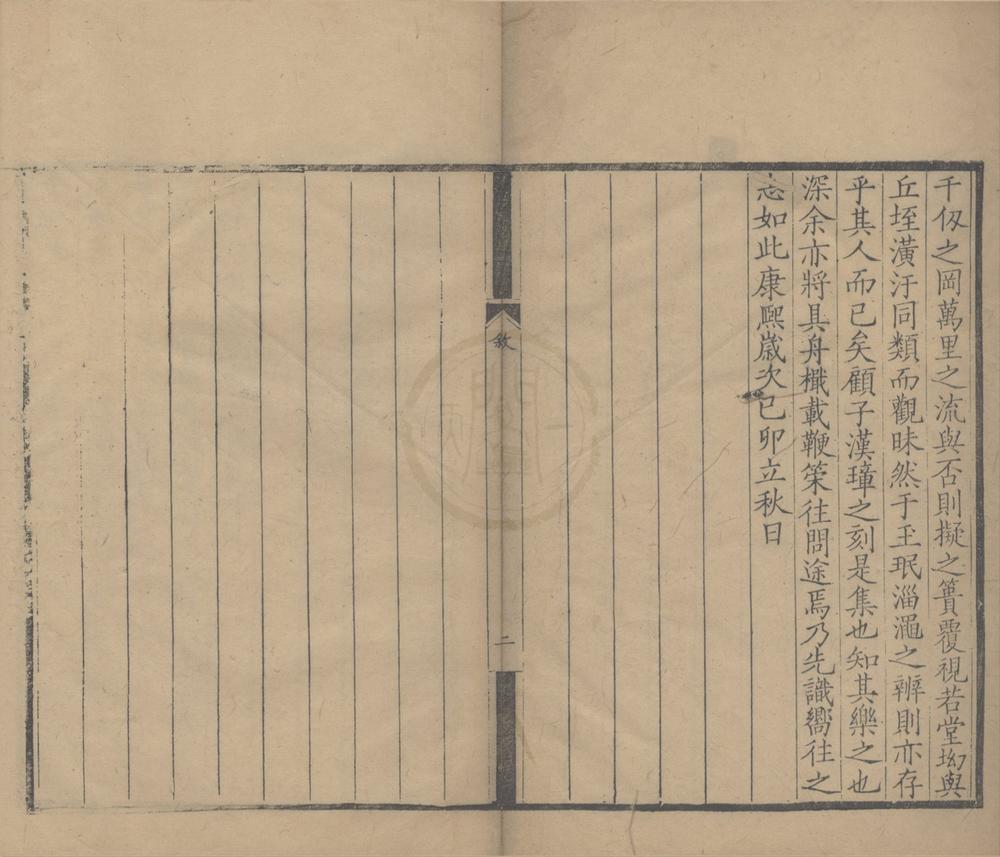 千仭之岡萬里之流與否則擬之簣覆視若堂坳與
丘垤潢汙同類而觀昧然于玉珉淄澠之辨則亦存
乎其人而已矣顧子漢瑋之刻是集也知其樂之也
深余亦將具舟檝載鞭筞往問途焉乃先識嚮往之
志如此康熈歲次已卯立秋日
敘
二